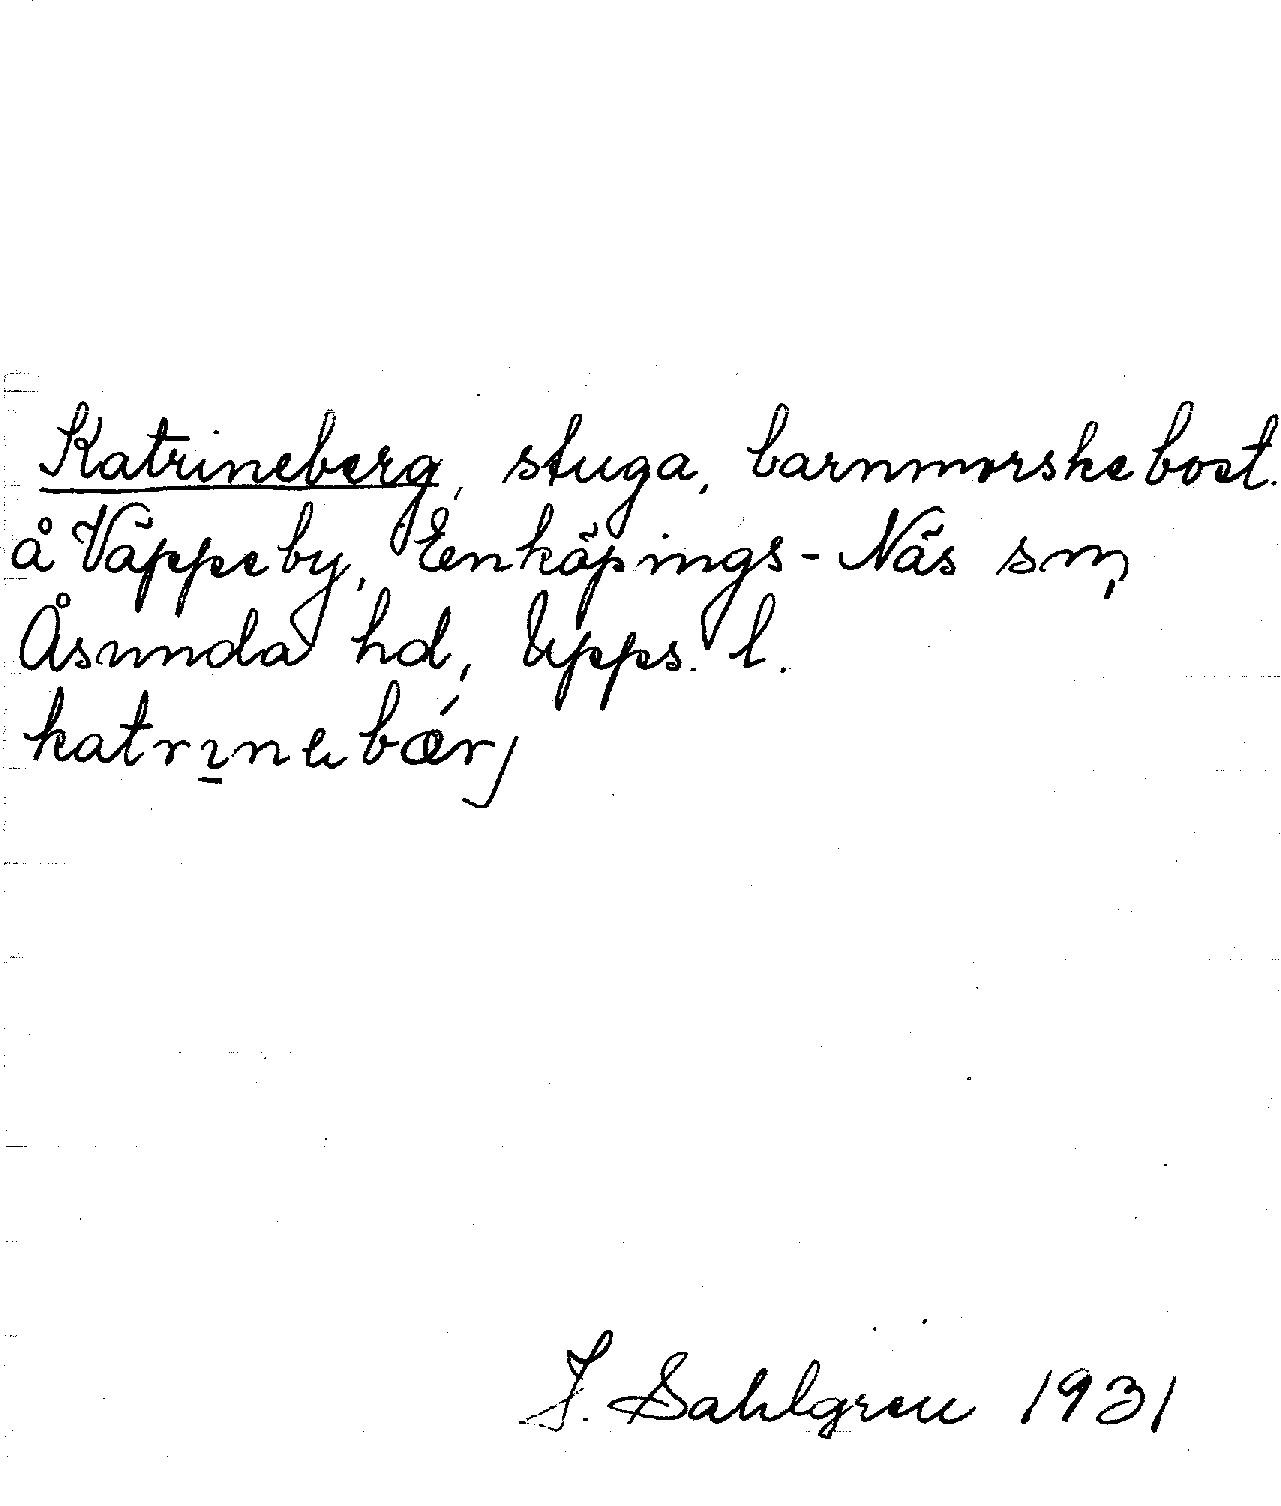 Katrineberg, stuga, barnmorskebost.
å Väppeby, Enköpings-Näs sn,
Åsunda hd, Upps. l.
katrı̱nebǽrj
J. Sahlgren 1931